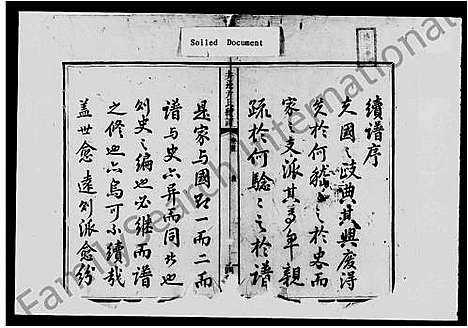 Soiled Document
續譜序
夫國之政典其興廢得
失於何驗之於史而
家之支派其尊卑親
疏於何驗之於譜
是家與國不一而二而
譜與史亦異而同者也
史之編也必繼而譜
之修也亦烏可不續哉
蓋世愈遠則派愈紛
FamilySearch International